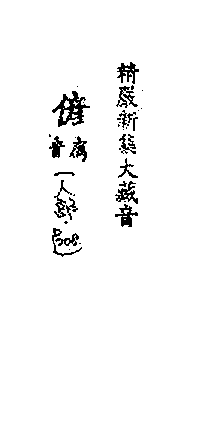 精嚴新集大藏音
音
一人部.508